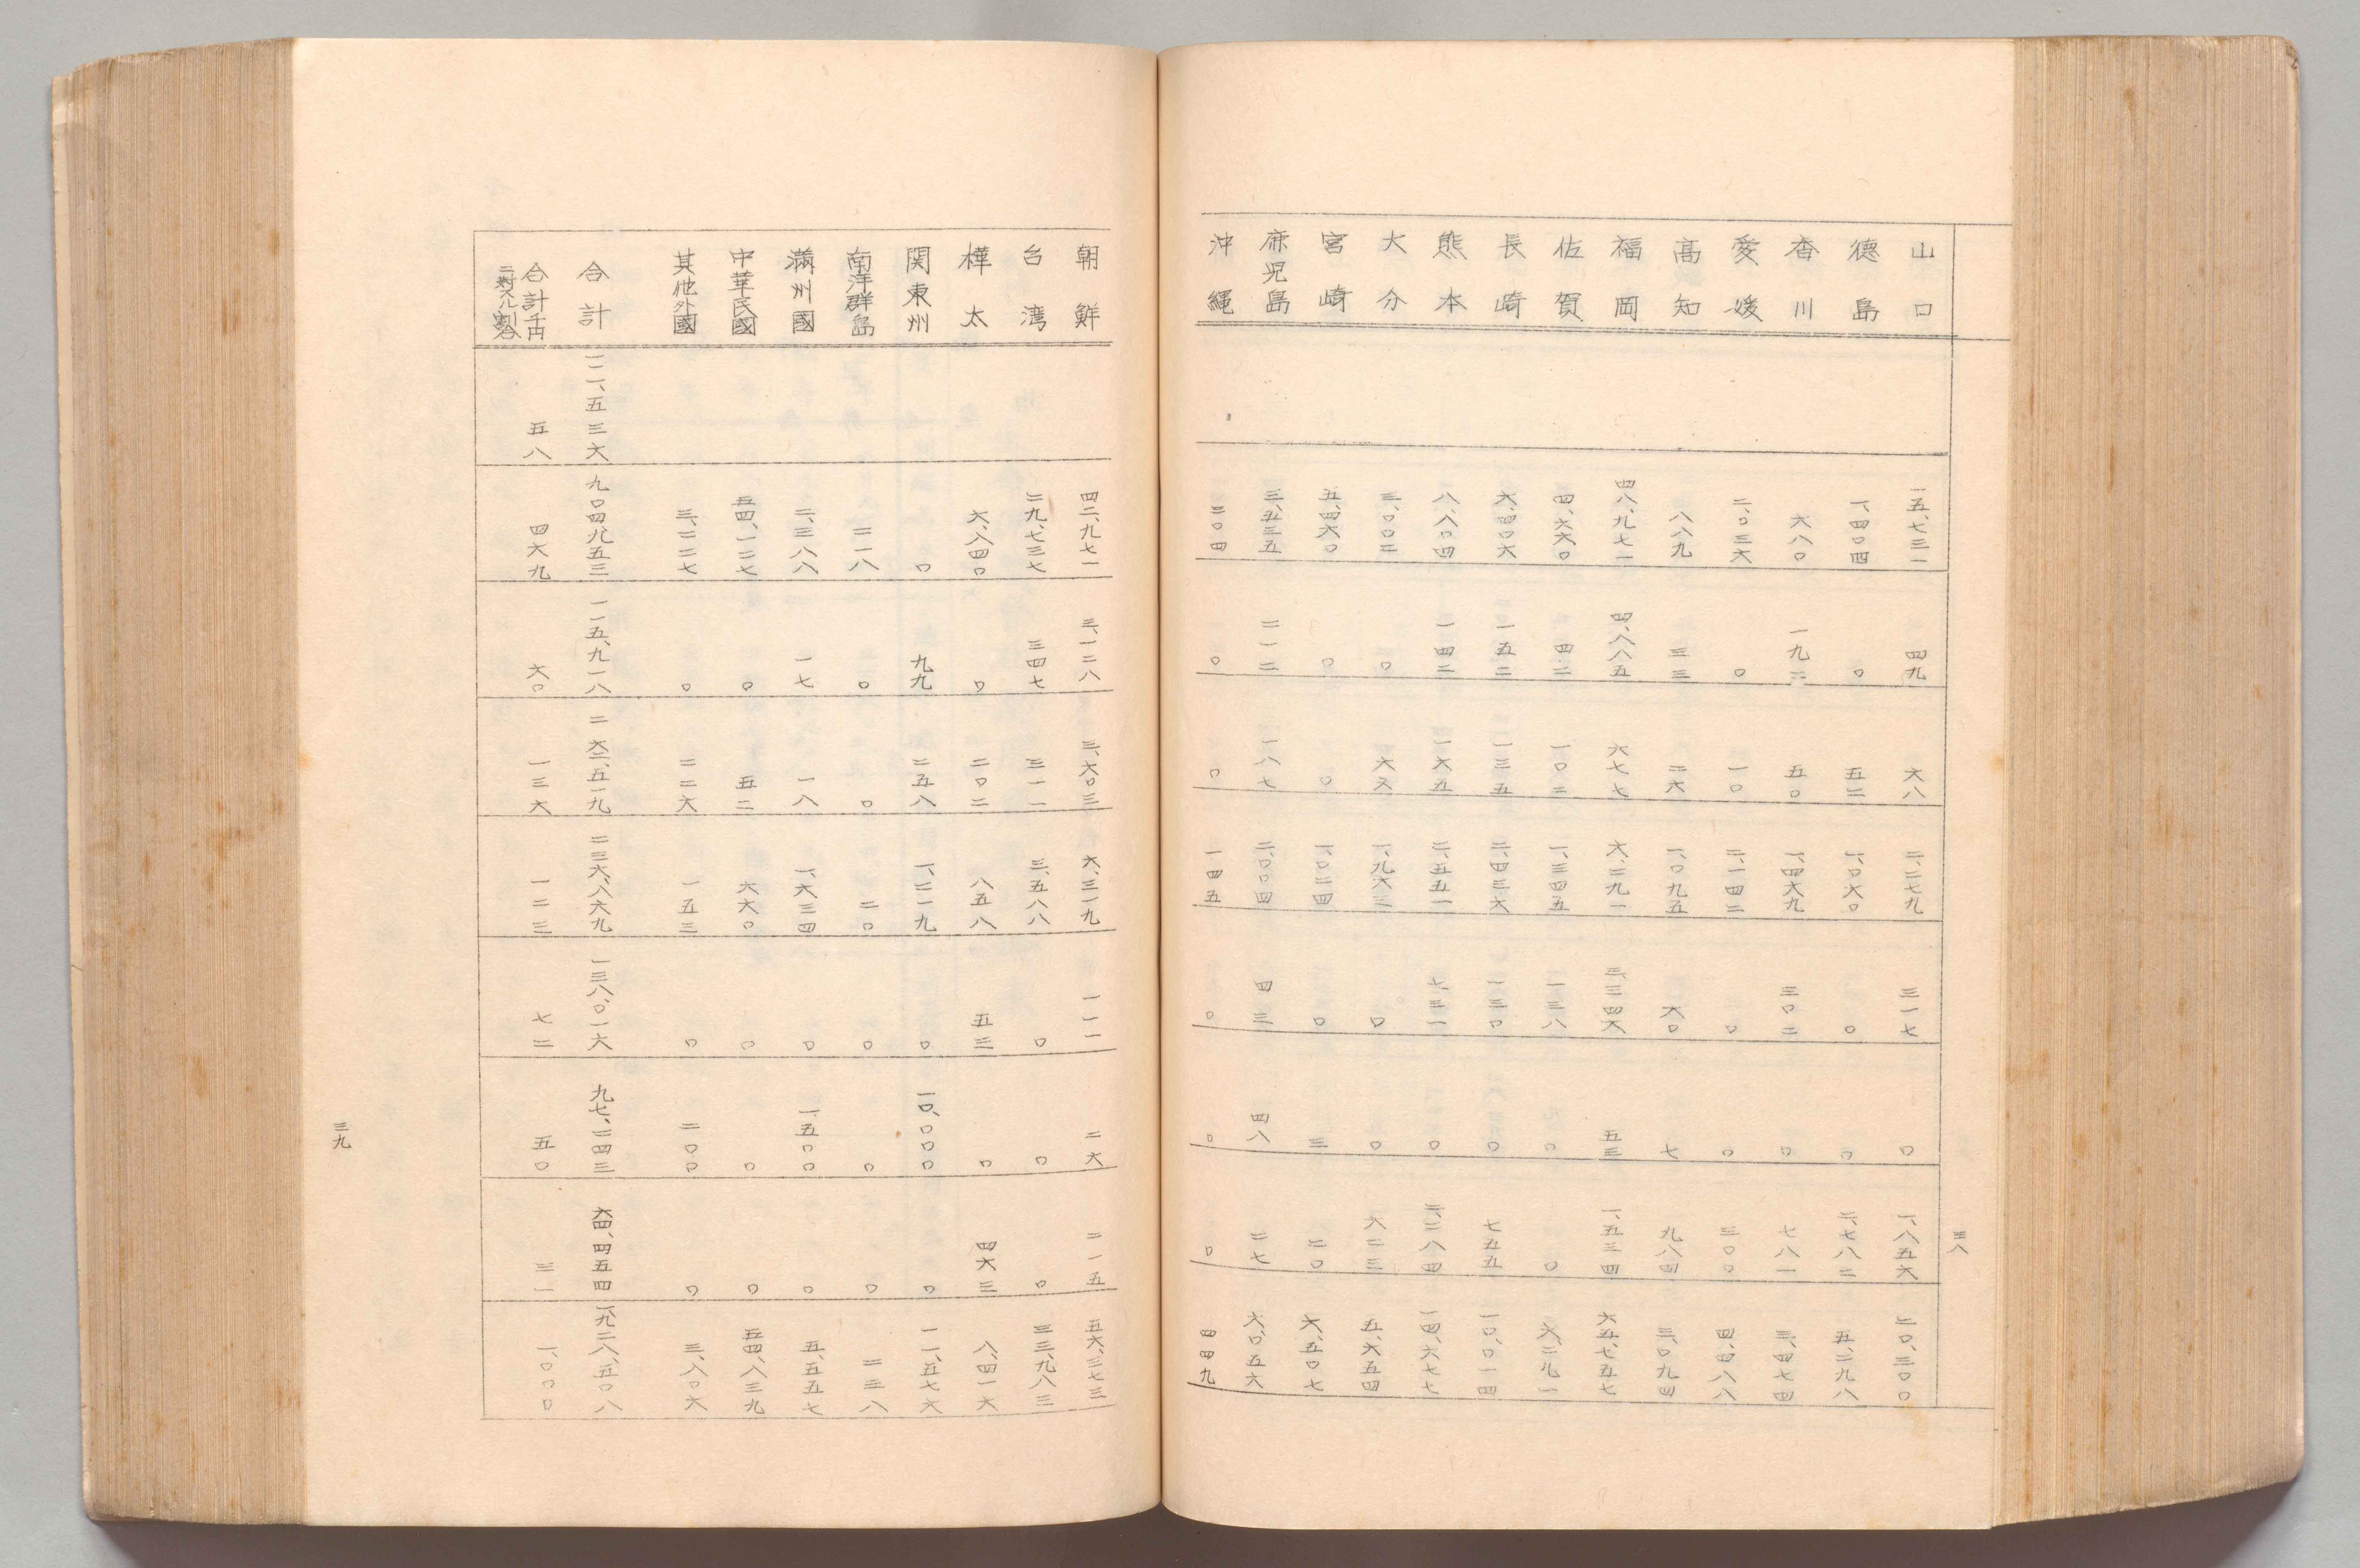 三八
山口 一五、七三一 四九 六八 二、二七九 三一七 〇 一、八五六 二〇、三〇〇
徳島 一、四〇四 〇 五二 一、〇六〇 〇 〇 二、七八二 五、二九八
香川 六八〇 一九二 五〇 一、四六九 三〇二 〇 七八一 三、四七四
愛媛 二、〇三六 〇 一〇 二、一四二 〇 〇 三〇〇 四、四八八
高知 八八九 三三 二六 一、〇九五 六〇 七 九八四 三、〇九四
福岡 四八、九七一 四、八八五 六七七 六、二九一 三、三四六 五三 一、五三四 六五、七五七
佐賀 四、六六〇 四二 一〇二 一、三四五 一三八 〇 〇 六、二九一
長崎 六、四〇六 一五二 一三五 二、四三六 一三〇 〇 七五五 一〇、〇一四
熊本 八、八〇四 一四二 一六五 二、五五一 七三一 〇 二、二八四 一四、六七七
大分 三、〇〇二 〇 六六 一、九六三 〇 〇 六二三 五、六五四
宮崎 五、四六〇 〇 〇 一、〇二四 〇 三 二〇 六、五〇七
鹿児島 三、五三五 二一二 一八七 二、〇〇四 四三 四八 二七 六、〇五六
沖縄 三〇四 〇 〇 一四五 〇 〇 〇 四四九
朝鮮 四二、九七一 三、一二八 三、六〇三 六、三一九 一一一 二六 二一五 五六、三七三
台湾 二九、七三七 三四七 三一一 三、五八八 〇 〇 〇 三三、九八三
樺太 六、八四〇 〇 二〇二 八五八 五三 〇 四六三 八、四一六
関東州 〇 九九 二五八 一、二一九 〇 一〇、〇〇〇 〇 一一、五七六
南洋群島 二一八 〇 〇 二〇 〇 〇 〇 二三八
満州國 二、三八八 一七 一八 一、六三四 〇 一、五〇〇 〇 五、五五七
中華民國 五四、一二七 〇 五二 六六〇 〇 〇 〇 五四、八三九
其他外國 三、二二七 〇 二二六 一五三 〇 二〇〇 〇 三、八〇六
合計 一一一、五三六 九〇四、九五三 一一五、九一八 二六二、五一九 二三六、八六九 一三八、〇一六 九七、二四三 六四、四五四 一、九二八、五〇八
合計千円ニ対スル割合 五八 四六九 六〇 一三六 一二三 七二 五〇 三一 一、〇〇〇
三九